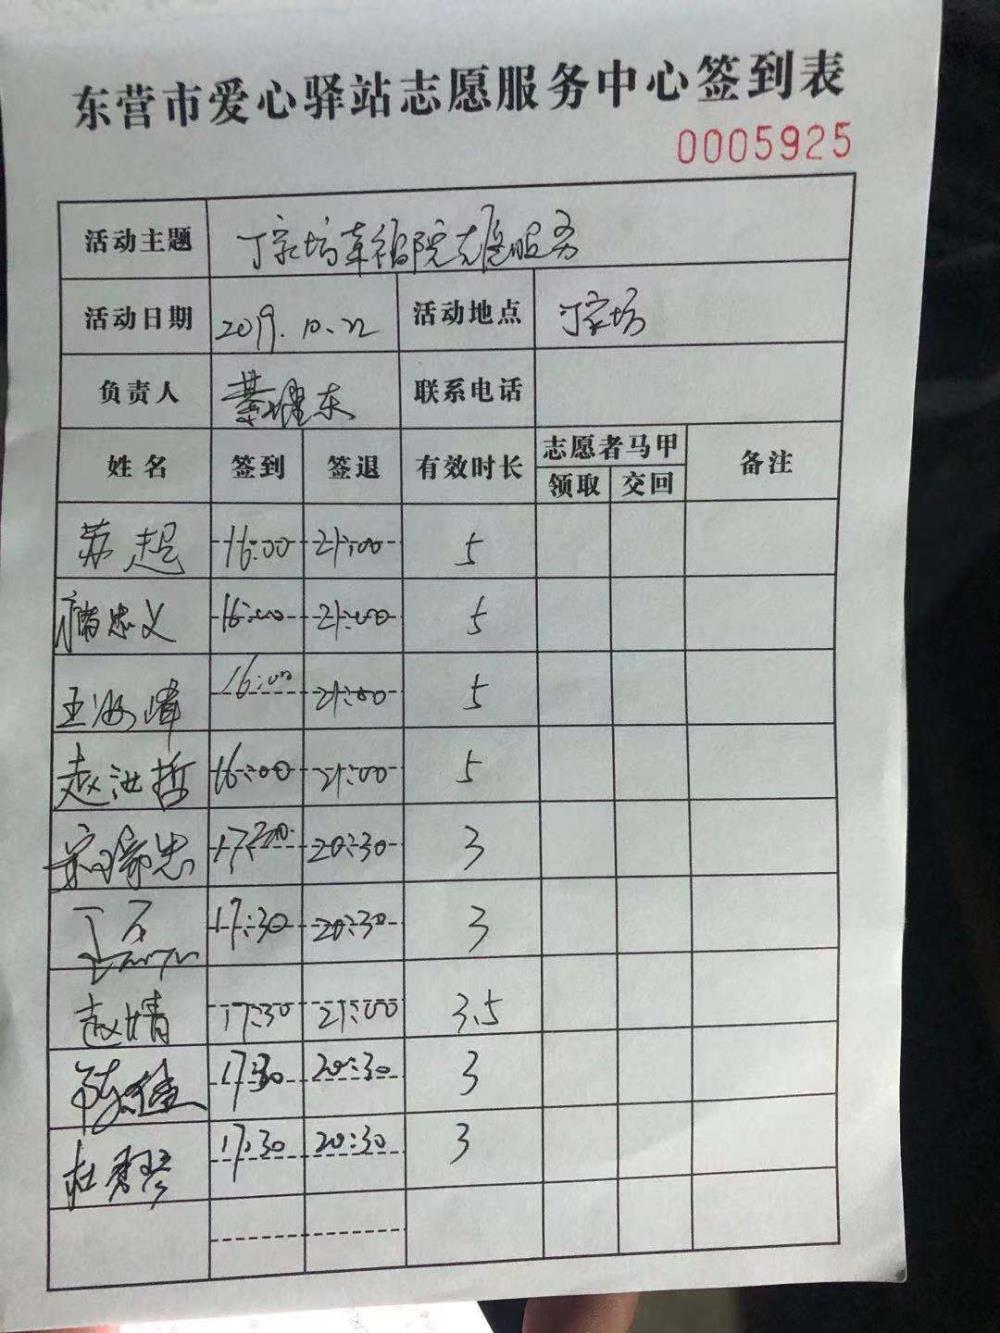 东营市爱心驿站志愿服务中心签到表
0005925
活动主题 丁家坊幸福院志愿服务
活动日期 2019.10.22 活动地点 丁家坊
负责人 联系电话
姓名 签到 签退 有效时长 志愿者马甲 备注
领取 交回
苏超 16:00 21:00 5
忠义 16:00 21:00 5
王海峰 16:00 21:00 5
赵洪哲 16:00 21:00 5
17:30 20:30 3
17:30 20:30 3
赵婧 17:30 21:00 3.5
17:30 20:30 3
杜秀琴 17:30 20:30 3